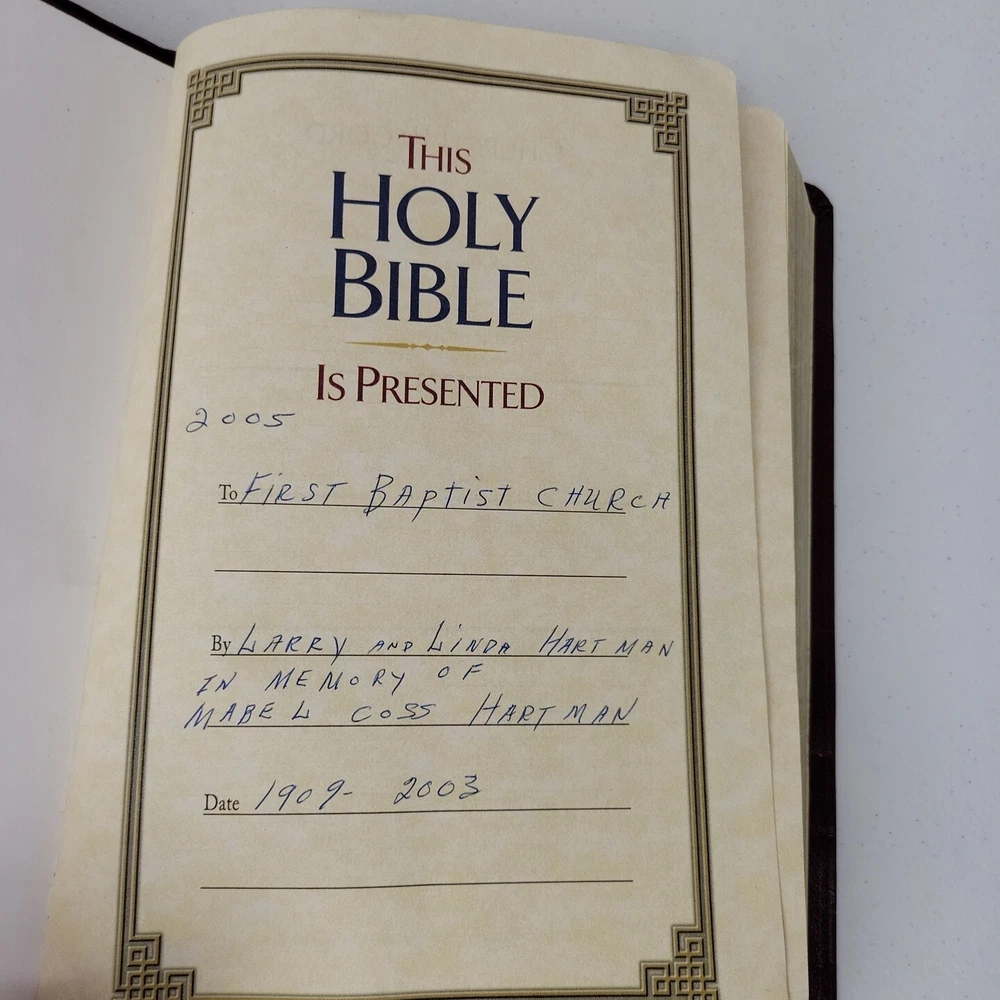 THIS
HOLY
BIBLE
IS PRESENTED
2005
To FIRST BAptist CHURCH
By LARRY AND LINDA HARTMAN
IN MEMORY OF
MABEL COSS HARTMAN
Date 1909- 2003